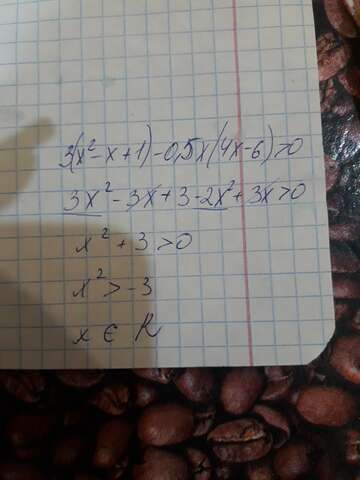 3(x² - x + 1) - 0,5x(4x - 6) > 0
3x² - 3x + 3 - 2x² + 3x > 0
x² + 3 > 0
x² > -3
x ∈ R